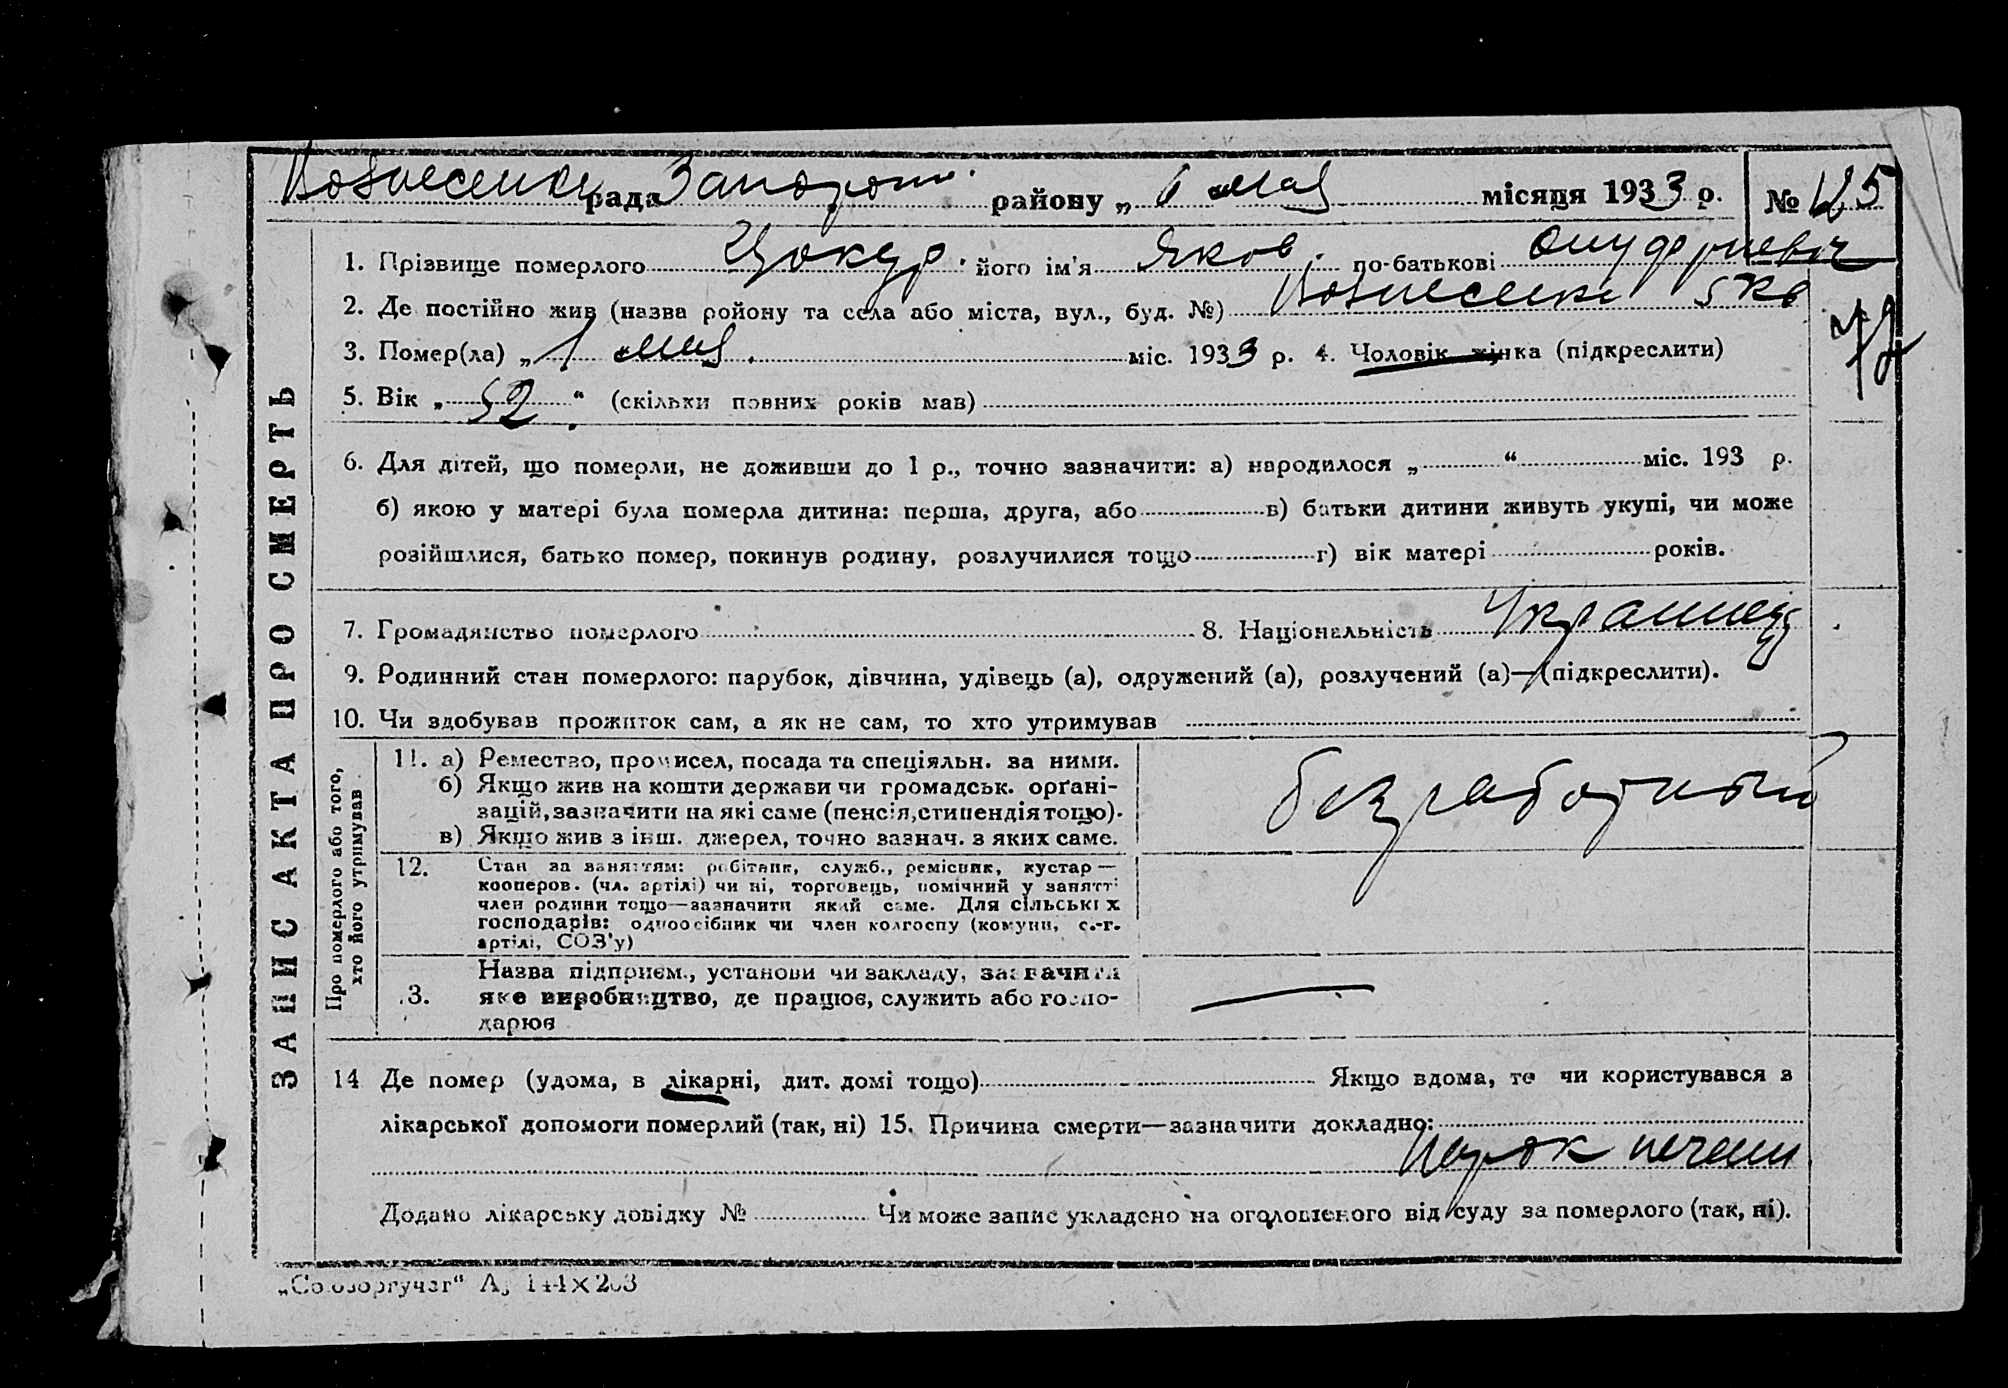 Вознесенськ рада Запорож. району „ 6 мая місяця 1933 р. № 125
1. Прізвище померлого Цокур. його ім'я Яков. по-батькові Онуфриевич
2. Де постійно жив (назва району та села або міста, вул., буд. №) Вознесенка 5 кв
72
3. Помер(ла) „ 1 мая. міс. 1933 р. 4. Чоловік жінка (підкреслити)
5. Вік „ 52 “ (скільки повних років мав)
6. Для дітей, що померли, не доживши до 1 р., точно зазначити: а) народилося „ “ міс. 193 р.
б) якою у матері була померла дитина: перша, друга, або в) батьки дитини живуть укупі, чи може
розійшлися, батько помер, покинув родину, розлучилися тощо г) вік матері років.
7. Громадянство померлого 8. Національність Украинец
9. Родинний стан померлого: парубок, дівчина, удівець (а), одружений (а), розлучений (а)—(підкреслити).
10. Чи здобував прожиток сам, а як не сам, то хто утримував
ЗАПИС АКТА ПРО СМЕРТЬ
Про померлого або того, хто його утримував
11. а) Ремество, промисел, посада та спеціяльн. за ними.
б) Якщо жив на кошти держави чи громадськ. орґані-
зацій, зазначити на які саме (пенсія, стипендія тощо).
в) Якщо жив з інш. джерел, точно зазнач. з яких саме.
безработный
12. Стан за заняттям: робітник, служб., ремісник, кустар —
кооперов. (чл. артілі) чи ні, торговець, помічний у занятті
член родини тощо—зазначити який саме. Для сільських
господарів: одноосібник чи член колгоспу (комуни, с.-г.
артілі, СОЗ'у)
13. Назва підприєм., установи чи закладу, зазначити
яке виробництво, де працює, служить або госпо-
дарює
14 Де помер (удома, в лікарні, дит. домі тощо) Якщо вдома, то чи користувався з
лікарської допомоги померлий (так, ні) 15. Причина смерти—зазначити докладно:
Порок печени
Додано лікарську довідку № Чи може запис укладено на оголошеного від суду за померлого (так, ні).
„Союзоргучет“ А5 144×203